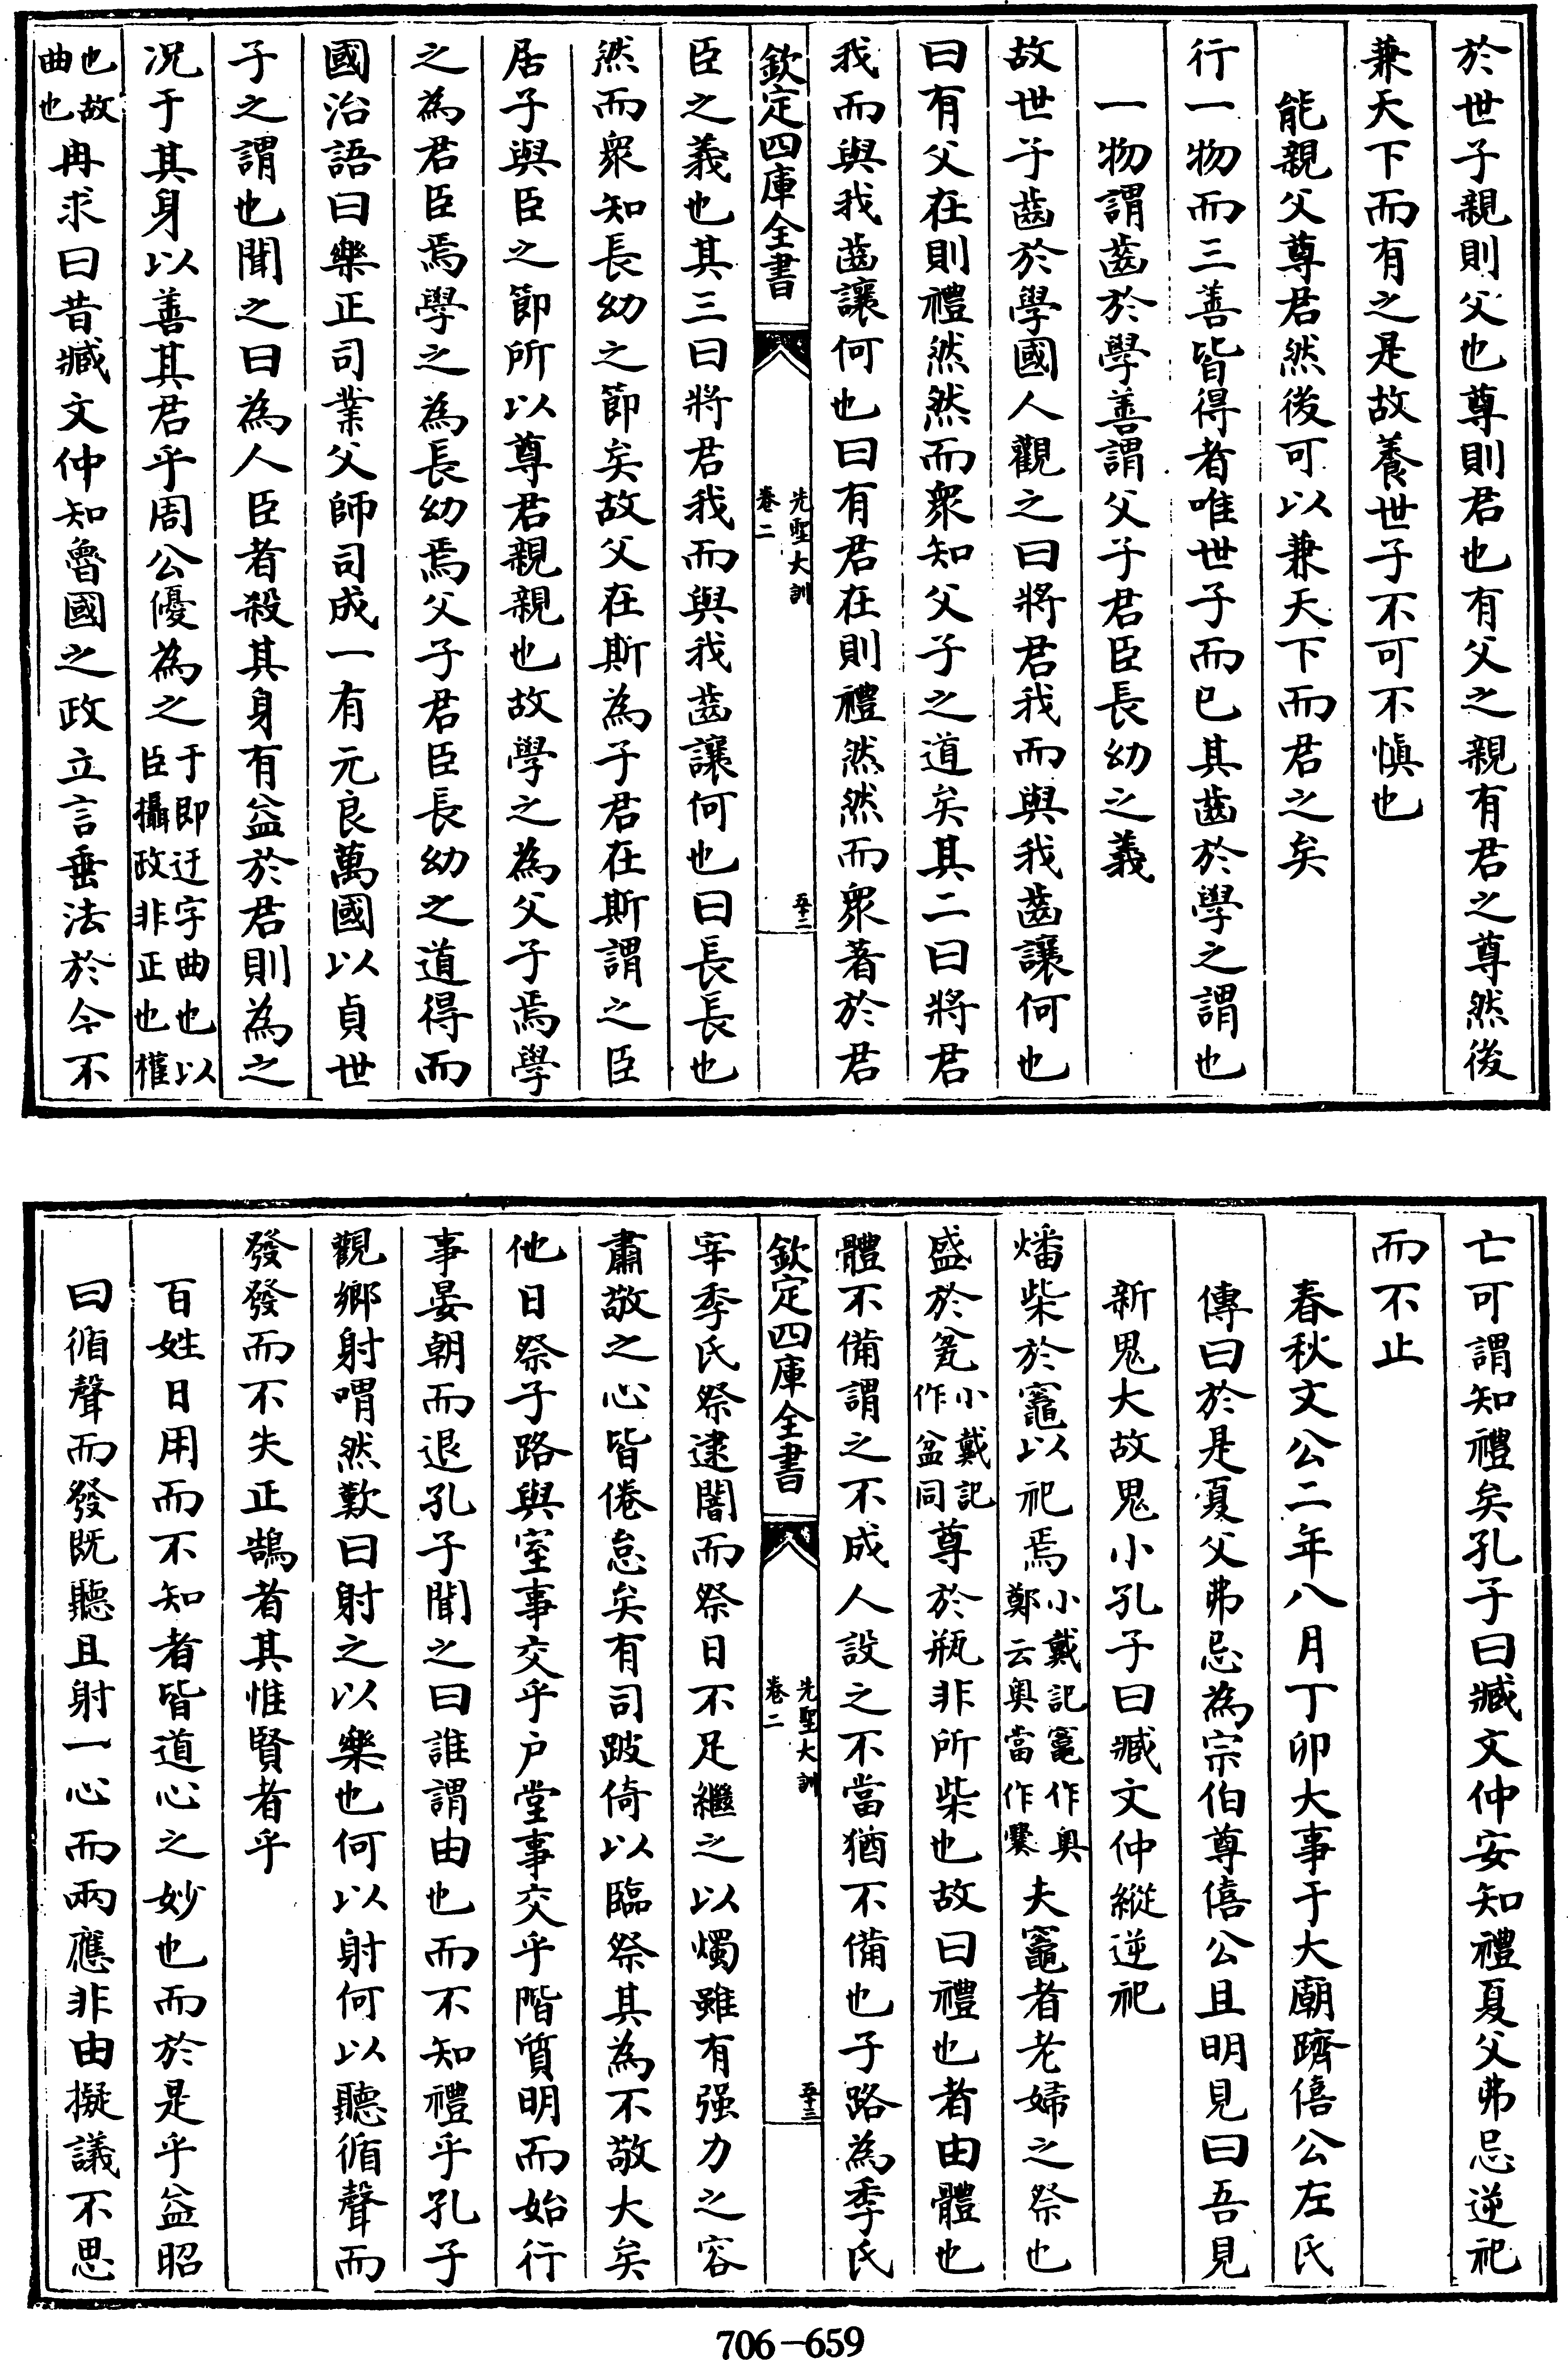 於世子親則父也尊則君也有父之親有君之尊然後
兼天下而有之是故養世子不可不慎也
能親父尊君然後可以兼天下而君之矣
行一物而三善皆得者唯世子而已其齒於學之謂也
一物謂齒於學善謂父子君臣長幼之義
故世子齒於學國人觀之曰將君我而與我齒讓何也
曰有父在則禮然然而衆知父子之道矣其二曰將君
我而與我齒讓何也曰有君在則禮然然而衆著於君
欽定四庫全書
先聖大訓
卷二
五十二
臣之義也其三曰將君我而與我齒讓何也曰長長也
然而衆知長幼之節矣故父在斯為子君在斯謂之臣
居子與臣之節所以尊君親親也故學之為父子焉學
之為君臣焉學之為長幼焉父子君臣長幼之道得而
國治語曰樂正司業父師司成一有元良萬國以貞世
子之謂也聞之曰為人臣者殺其身有益於君則為之
況于其身以善其君乎周公優為之于即迂字曲也以臣攝政非正也權
也故曲也冉求曰昔臧文仲知魯國之政立言垂法於今不
亡可謂知禮矣孔子曰臧文仲安知禮夏父弗忌逆祀
而不止
春秋文公二年八月丁卯大事于大廟躋僖公左氏
傳曰於是夏父弗忌為宗伯尊僖公且明見曰吾見
新鬼大故鬼小孔子曰臧文仲縱逆祀
燔柴於竈以祀焉小戴記竈作奥鄭云奥當作爨夫竈者老婦之祭也
盛於瓮小戴記作盆同尊於瓶非所柴也故曰禮也者由體也
體不備謂之不成人設之不當猶不備也子路為季氏
欽定四庫全書
先聖大訓
卷二
五十三
宰季氏祭逮闇而祭日不足繼之以燭雖有强力之容
肅敬之心皆倦怠矣有司跛倚以臨祭其為不敬大矣
他日祭子路與室事交乎户堂事交乎階質明而始行
事晏朝而退孔子聞之曰誰謂由也而不知禮乎孔子
觀鄉射喟然歎曰射之以樂也何以射何以聽循聲而
發發而不失正鵠者其惟賢者乎
百姓日用而不知者皆道心之妙也而於是乎益昭
曰循聲而發既聽且射一心而兩應非由擬議不思
706-659